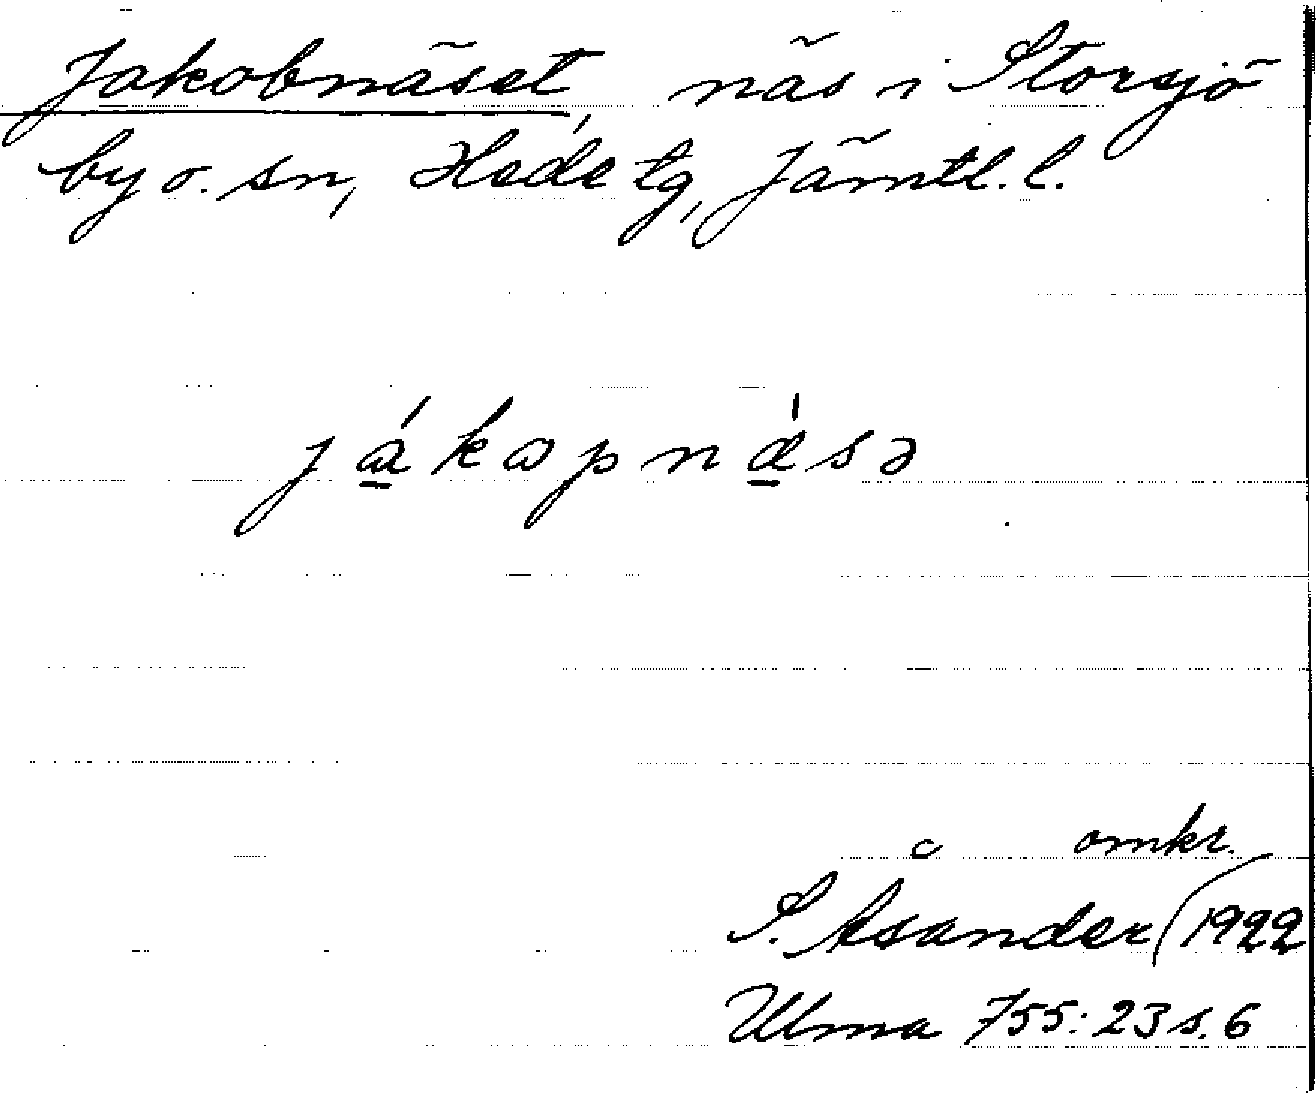 Jakobnäset, näs i Storsjö
by o. sn, Hede tg, Jämtl. l.
já̱kɷpnà̱sə
omkr.
S. Åsander (1922
Ulma 755:23 s. 6